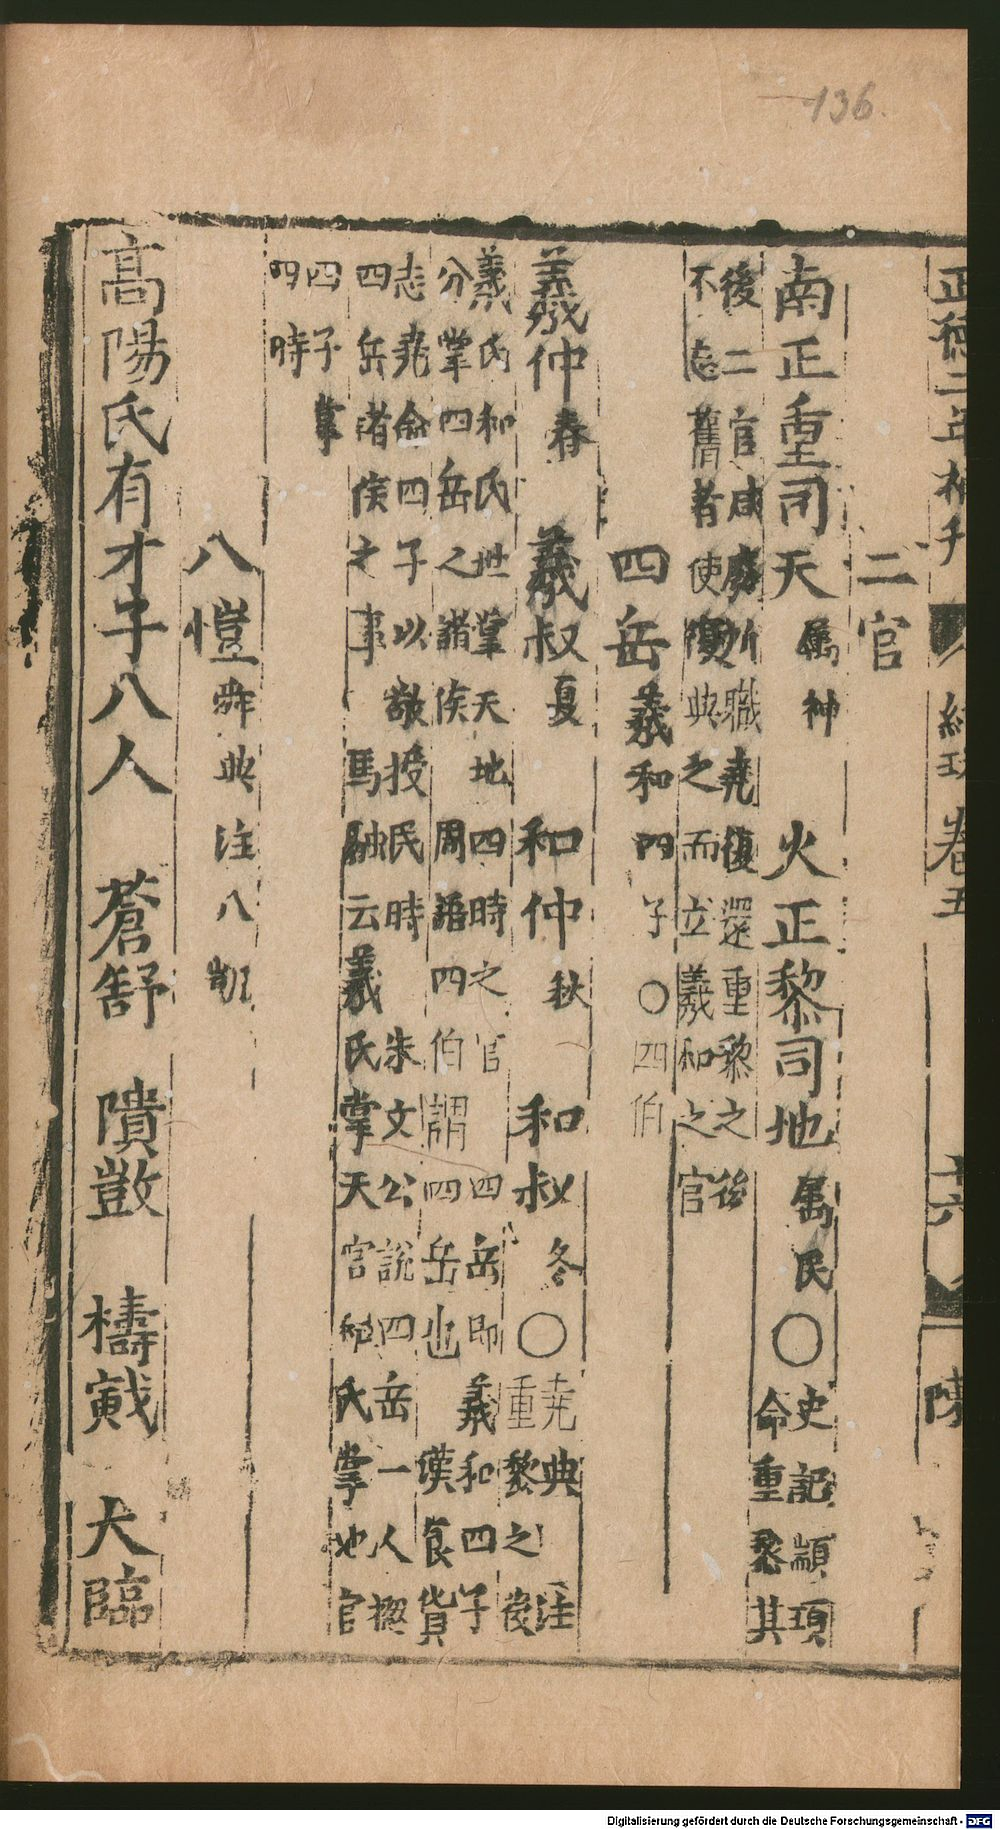 136.
正德二年補刊 卷五 十六 陳
二官
南正重司天 属神 火正黎司地 属民 ○ 史記顓頊
命重黎其
後二官咸廢所職堯復還重黎之後
不忘舊者使復典之而立羲和之官
四岳 羲和四子 ○ 四伯
羲仲 春 羲叔 夏 和仲 秋 和叔 冬 ○ 堯典注
重黎之後
羲氏和氏世掌天地四時之官 四岳即羲和四子
分掌四岳之諸侯 周語四伯謂四岳也 漢食貨
志堯命四子以敬授民時 朱文公說四岳一人揔
四岳諸侯之事 馬融云羲氏掌天官和氏掌地官
四子掌
四時
八愷 舜典注八凱
高陽氏有才子八人 蒼舒 隤敳 檮戭 大臨
Digitalisierung gefördert durch die Deutsche Forschungsgemeinschaft - DFG